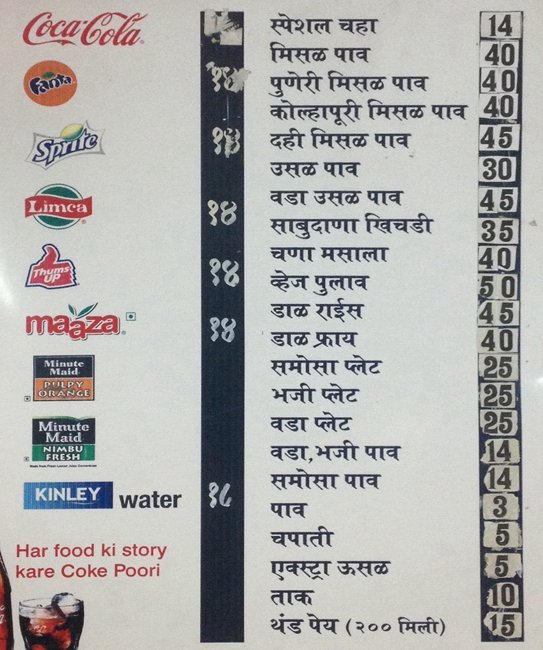 Coca-Cola
Fanta
Sprite
Limca
Thums UP
maaza
Minute Maid
PULPY ORANGE
Minute Maid
NIMBU FRESH
KINLEY water
Har food ki story
kare Coke Poori
१४
१४
१४
स्पेशल चहा 14
मिसळ पाव 40
पुणेरी मिसळ पाव 40
कोल्हापूरी मिसळ पाव 40
दही मिसळ पाव 45
उसळ पाव 30
वडा उसळ पाव 45
साबुदाणा खिचडी 35
चणा मसाला 40
व्हेज पुलाव 50
डाळ राईस 45
डाळ फ्राय 40
समोसा प्लेट 25
भजी प्लेट 25
वडा प्लेट 25
वडा,भजी पाव 14
समोसा पाव 14
पाव 3
चपाती 5
एक्स्ट्रा ऊसळ 5
ताक 10
थंड पेय (२०० मिली) 15